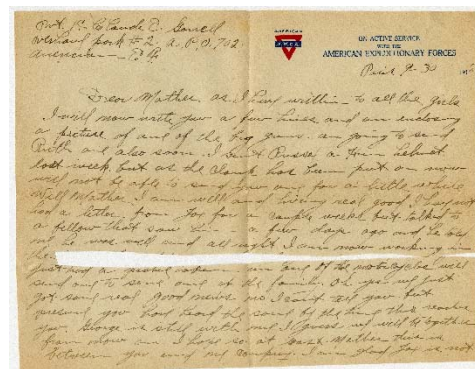 Pvt. Claude D. Gorrell
Overhaul park # 2 A.P.O. 702
American E. F.
AMERICAN
Y.M.C.A.
ON ACTIVE SERVICE
WITH THE
AMERICAN EXPEDITIONARY FORCES
9-30 191
Dear Mother, as I have written to all the girls
I will now write you a few lines and am enclosing
a picture of one of the big guns. am going to send
Ruth one also soon. I sent a helmet
last week but as the has been put on now
will not be able to send you one for a little while
Well Mother I am well and living real good I have not
had a letter from for a couple weeks but talked to
a fellow that saw him a few days ago and he told
me he was well and all right I am now working in
the
just had a taken on one of the motorcycles will
send one to some one of the family. Oh yes we just
got some real good news no I cant tell you but
presume you have heard the same by the time this reaches
you. George is still with me I guess we will be together
from now on I hope so at least Mother this is
between you and me I am glad is not